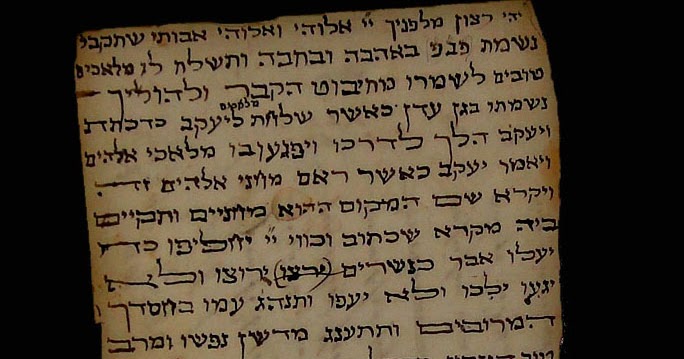 יהי רצון מלפניך יי אלוהי ואלוהי אבותי שתקבל
נשמת באהבה ובחבה ותשלח לו מלאכים
טובים לשמרו מחיבוט הקבר ולהוליך
נשמתו בגן עדן כאשר שלחת מלאכים ליעקב כדכתת
ויעקב הלך לדרכו ויפגעו בו מלאכי אלהים
ויאמר יעקב כאשר ראם מחני אלהים זה
ויקרא שם המקום ההוא מחניים ותקיים
ביה מקרא שכתוב וקווי יי יחליפו כח
יעלו אבר כנשרים (ירצו) ירוצו ולא
יגעו ילכו ולא יעפו ותנהג עמו בחסדך
המרובים ותתענג מדשן נפשו ומרב